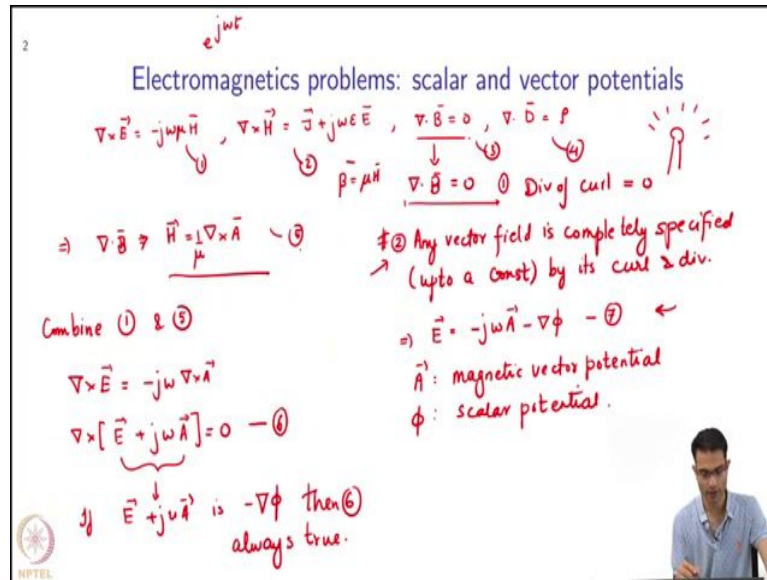 2
e^{jωt}
Electromagnetics problems: scalar and vector potentials
∇×E⃗ = -jωμH⃗ ①, ∇×H⃗ = J⃗ + jωεE⃗ ②, ∇·B̄ = 0 ③, ∇·D̄ = ρ ④
B̄ = μH̄ ∇·B̄ = 0 ① Div of curl = 0
⇒ ∇·B̄ ⇒ H⃗ = 1/μ ∇×Ā – ⑤
② Any vector field is completely specified
(upto a const) by its curl & div.
Combine ① & ⑤
∇×E⃗ = -jω ∇×A⃗
∇×[E⃗ + jωA⃗] = 0 – ⑥
If E⃗ + jωA⃗ is -∇ϕ then ⑥
always true.
⇒ E⃗ = -jωA⃗ - ∇ϕ – ⑦ ←
A⃗ : magnetic vector potential
ϕ : scalar potential.
NPTEL